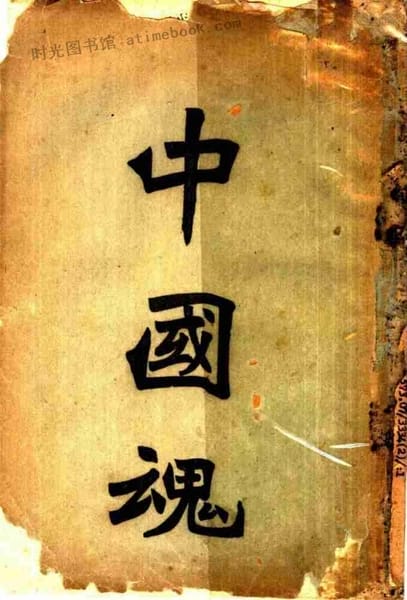 时光图书馆:atimebook.com
中
國
魂